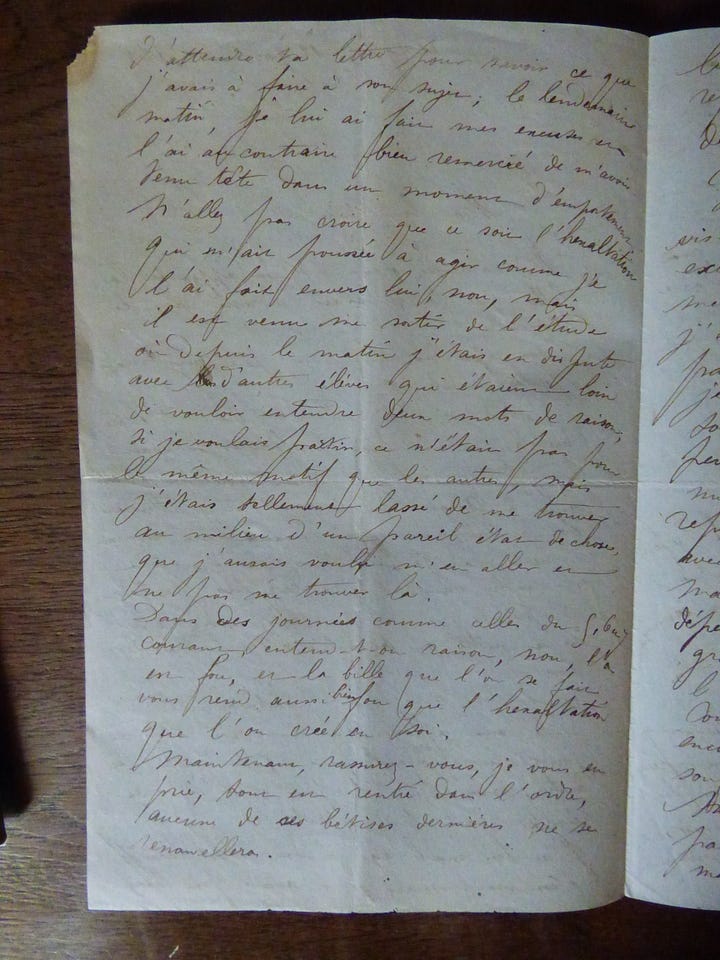 d'attendre ta lettre pour savoir ce que
j'avais à faire à son sujet; le lendemain
matin, je lui ai fait mes excuses et
l'ai au contraire bien remercié de m'avoir
tenu tête dans un moment d'emportement
N'allez pas croire que ce soit l'henaltation
qui m'ait poussée à agir comme je
l'ai fait envers lui, non, mais
il est venu me sortir de l'étude
où depuis le matin j'étais en dispute
avec d'autres élèves qui étaient loin
de vouloir entendre deux mots de raison,
si je voulais partir, ce n'était pas pour
le même motif que les autres, mais
j'étais tellement lassé de me trouver
au milieu d'un pareil état de chose,
que j'aurais voulu m'en aller et
ne pas me trouver là.
Dans des journées comme celles du 5, 6 
courant entend-t-on raison, non, l'on
est fou, et la bille que l'on se fait
vous rend aussi bien fou que l'henaltation
que l'on crée en soi.
Maintenant, rassurez-vous, je vous en
prie, tout est rentré dans l'ordre,
aucune de ces bêtises dernières ne se
renouvellera.